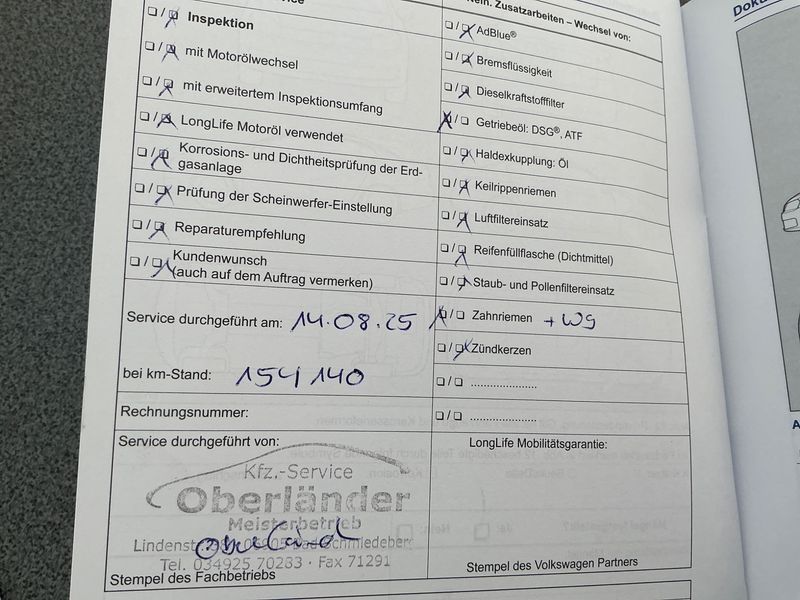 Nein. Zusatzarbeiten – Wechsel von:
❏ / ❏ Inspektion
❏ / ❏ mit Motorölwechsel
❏ / ❏ mit erweitertem Inspektionsumfang
❏ / ❏ LongLife Motoröl verwendet
❏ / ❏ Korrosions- und Dichtheitsprüfung der Erd-
gasanlage
❏ / ❏ Prüfung der Scheinwerfer-Einstellung
❏ / ❏ Reparaturempfehlung
❏ / ❏ Kundenwunsch
(auch auf dem Auftrag vermerken)
Service durchgeführt am: 14.08.25
bei km-Stand: 154 140
Rechnungsnummer:
Service durchgeführt von:
Kfz.-Service
Oberländer
Meisterbetrieb
Lindenst
Bad Schmiedeberg
Tel. 034925 70233 · Fax 71291
Stempel des Fachbetriebs
❏ / ❏ AdBlue®
❏ / ❏ Bremsflüssigkeit
❏ / ❏ Dieselkraftstofffilter
❏ / ❏ Getriebeöl: DSG®, ATF
❏ / ❏ Haldexkupplung: Öl
❏ / ❏ Keilrippenriemen
❏ / ❏ Luftfiltereinsatz
❏ / ❏ Reifenfüllflasche (Dichtmittel)
❏ / ❏ Staub- und Pollenfiltereinsatz
❏ / ❏ Zahnriemen + WS
❏ / ❏ Zündkerzen
❏ / ❏ .....................
❏ / ❏ .....................
LongLife Mobilitätsgarantie:
Stempel des Volkswagen Partners
Doku